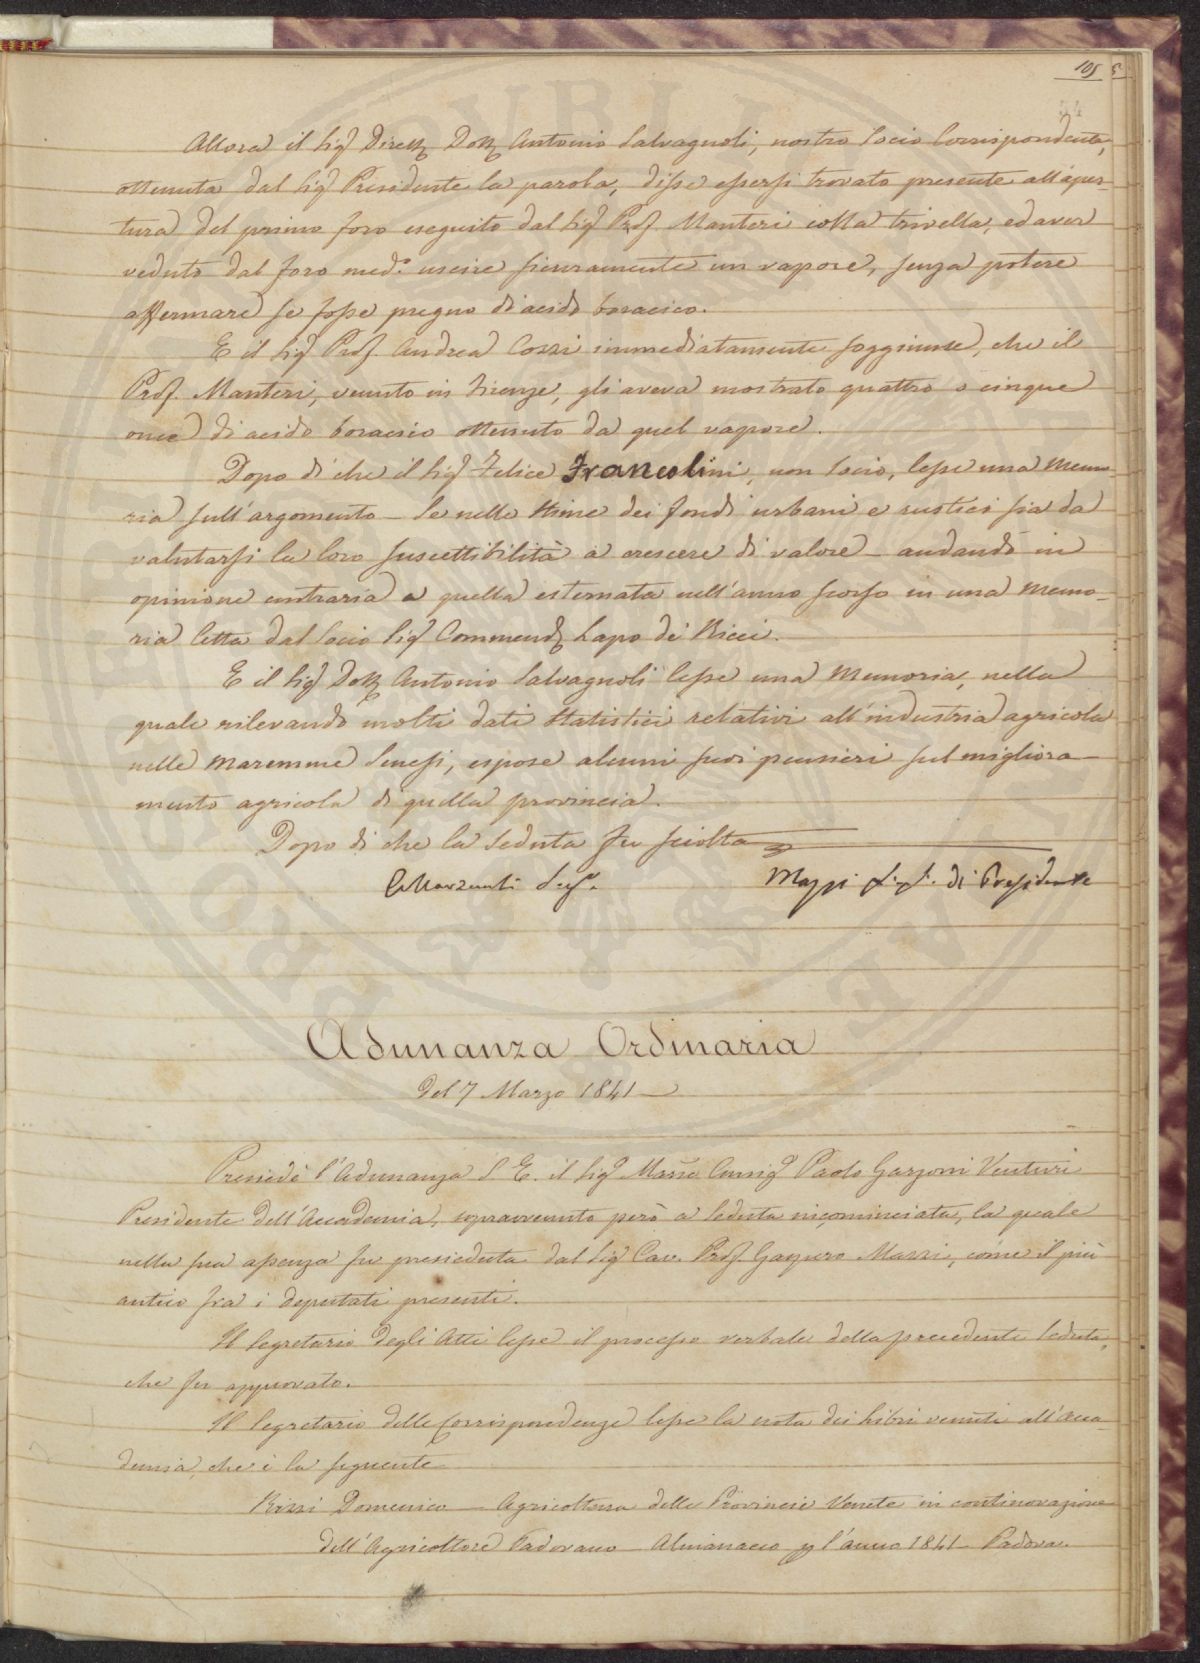 105
54
Allora il Sigr Dirett. Dott. Antonio Salvagnoli, nostro Socio Corrispondente,
ottenuta dal Sigr Presidente la parola, disse essersi trovato presente all'aper-
tura del primo foro eseguito dal Sigr Prof. Manteri colla trivella, ed aver
veduto dal foro med.o uscire sicuramente un vapore, senza potere
affermare se fosse pregno di acido boracico.
E il Sigr Prof. Andrea Cozzi immediatamente soggiunse, che il
Prof. Manteri, venuto in Firenze, gli aveva mostrato quattro o cinque
once di acido boracico ottenuto da quel vapore.
Dopo di che il Sigr Felice Francolini, non Socio, lesse una Memo-
ria sull'argomento – Se nelle Stime dei fondi urbani e rustici sia da
valutarsi la loro suscettibilità a crescere di valore – andando in
opinione contraria a quella esternata nell'anno scorso in una Memo-
ria letta dal Socio Sigr Commend. Lapo de' Ricci.
E il Sigr Dott. Antonio Salvagnoli lesse una Memoria, nella
quale rilevando molti dati Statistici relativi all'industria agricola
nelle Maremme Senesi, espose alcuni suoi pensieri sul migliora-
mento agricola di quella provincia.
Dopo di che la Seduta fu sciolta
Mazzi di Presidente
Adunanza Ordinaria
Del 7 Marzo 1841 –
Presiedè l'Adunanza S. E. il Sigr March. Consigr Paolo Garzoni Venturi
Presidente dell'Accademia, sopravvenuto però a Seduta incominciata, la quale
nella sua assenza fu presieduta dal Sigr Cav. Prof. Gaspero Mazzi, come il più
antico fra i deputati presenti.
Il Segretario degli Atti lesse il processo verbale della precedente Seduta,
che fu approvato.
Il Segretario delle Corrispondenze lesse la nota dei Libri venuti all'Acca-
demia, che è la seguente
Rizzi Domenico – Agricoltura delle Provincie Venete in continovazione
dell'Agricoltore Padovano – Almanacco p l'anno 1841 – Padova.